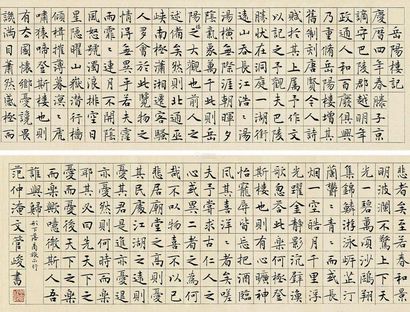 岳陽樓記
慶曆四年春滕子京
謫守巴陵郡越明年
政通人和百廢具興
乃重脩岳陽樓增其
舊制刻唐賢今人詩
賦於其上屬予作文
以記之予觀夫巴陵
勝狀在洞庭一湖銜
遠山吞長江浩〻湯
湯橫無際涯朝暉夕
陰氣象萬千此則岳
陽之大觀也前人之
述備矣然則北通巫
峽南極瀟湘遷客騷
人多會於此覽物之
情得無異乎若夫霪
雨霏〻連月不開陰
風怒號濁浪排空日
星隱曜山嶽潛行檣
傾楫摧薄暮冥〻虎
嘯猿啼登斯樓也則
有去國懷鄉憂讒畏
譏滿目蕭然感極而
悲者矣至若春和景
明波瀾不驚上下天
光一碧萬頃沙鷗翔
集錦鱗游泳岸芷汀
蘭郁〻青〻而或長
烟一空皓月千里浮
光躍金靜影沉璧漁
歌互答此樂何極登
斯樓也則有心曠神
怡寵辱皆忘把酒臨
風其喜洋〻者矣嗟
夫予嘗求古仁人之
心或異二者之為何
哉不以物喜不以己
悲居廟堂之高則憂
其民處江湖之遠則
憂其君是進亦憂退
亦憂然則何時而樂
耶其必曰先天下之
憂而憂後天下之樂
而樂歟噫微斯人吾
誰與歸
范仲淹文 峻書